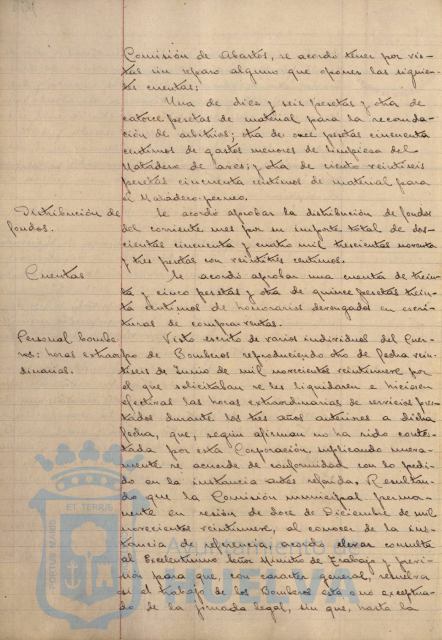 Comisión de Abastos, se acordó tener por vis-
tas sin reparo alguno que oponer las siguien-
tes cuentas:
Una de diez y seis pesetas y otra de
catorce pesetas de material para la recauda-
ción de arbitrios; otra de once pesetas cincuenta
céntimos de gastos menores de limpieza del
Matadero de aves; y otra de ciento veintiseis
pesetas cincuenta céntimos de material para
el Matadero
Distribución de
fondos.
Se acordó aprobar la distribución de fondos
del corriente mes por su importe total de dos-
cientas cincuenta y cuatro mil trescientas noventa
y tres pesetas con veintiseis céntimos.
Cuentas
Se acordó aprobar una cuenta de trein-
ta y cinco pesetas y otra de quince pesetas trein-
ta céntimos de honorarios devengados en escri-
turas de compraventas.
Personal bombe-
ros: horas extraor
dinarias.
Visto escrito de varios individuos del Cuer-
po de Bomberos reproduciendo otro de fecha vein-
tiseis de Junio de mil novecientos veintinueve por
el que solicitaban se les liquidaren e hicieren
efectivas las horas extraordinarias de servicios pres-
tados durante los tres años anteriores a dicha
fecha, que, según afirman no ha sido contes-
tada por esta Corporación, suplicando nueva-
mente se acuerde de conformidad con lo pedi-
do en la instancia antes referida. Resultan-
do que la Comisión municipal perma-
nente en sesión de doce de Diciembre de mil
novecientos veintinueve, al conocer de la ins-
tancia de referencia, acordó elevar consulta
al Excelentísimo señor Ministro de Trabajo y previ-
sión para que, con carácter general, resuelva
si el trabajo de los Bomberos está o no exceptua-
do de la jornada legal, sin que, hasta la
PORTUS MARIS
ET TERRIS
Ayuntamiento de
HUELVA